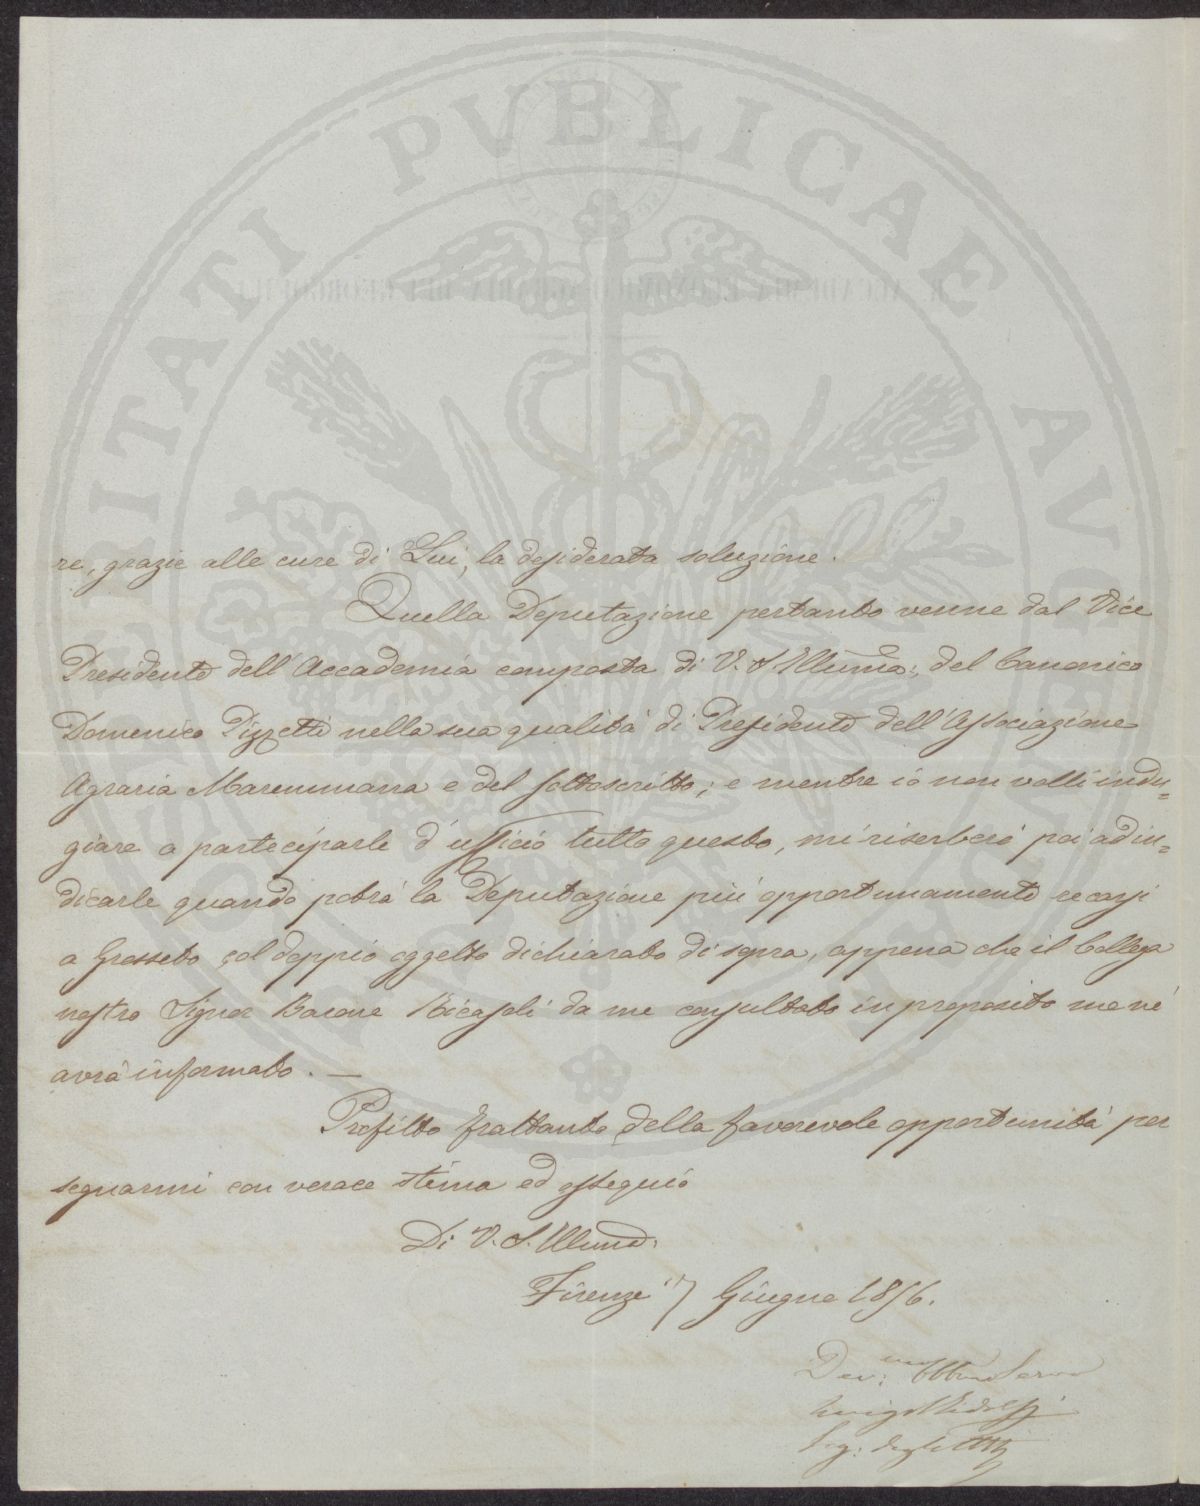 PROSPERITATI PUBLICAE AUGENDAE
R. ACCADEMIA ECONOMICO-AGRARIA DEI GEORGOFILI
re, grazie alle cure di Lui, la desiderata soluzione.
Quella Deputazione pertanto venne dal Vice
Presidente dell'Accademia composta di V. S. Illuma:, del Canonico
Domenico Pizzetti nella sua qualità di Presidente dell'Associazione
Agraria Maremmana e del sottoscritto; e mentre io non volli indu=
giare a parteciparle d'ufficio tutto questo, mi riserberò poi ad in=
dicarle quando potrà la Deputazione più opportunamente recarsi
a Grosseto col doppio oggetto dichiarato di sopra, appena che il Collega
nostro Signor Barone Ricasoli da me consultato in proposito me ne
avrà informato. —
Profitto frattanto della favorevole opportunità per
segnarmi con verace stima ed ossequio
Di V. S. Illuma.
Firenze 7 Giugno 1856.
Dev:mo Obbmo Servo
Luigi Ridolfi
Seg: degli Atti